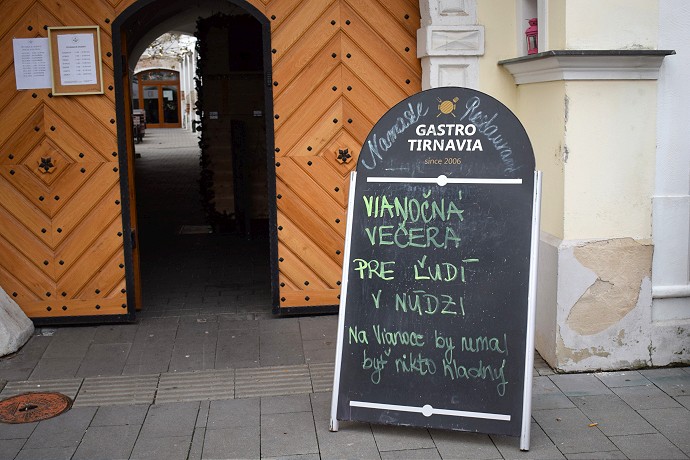 Namaste Restaurant
GASTRO
TIRNAVIA
since 2006
VIANOČNÁ
VEČERA
PRE ĽUDÍ
V NÚDZI
Na Vianoce by nemal
byť nikto hladný